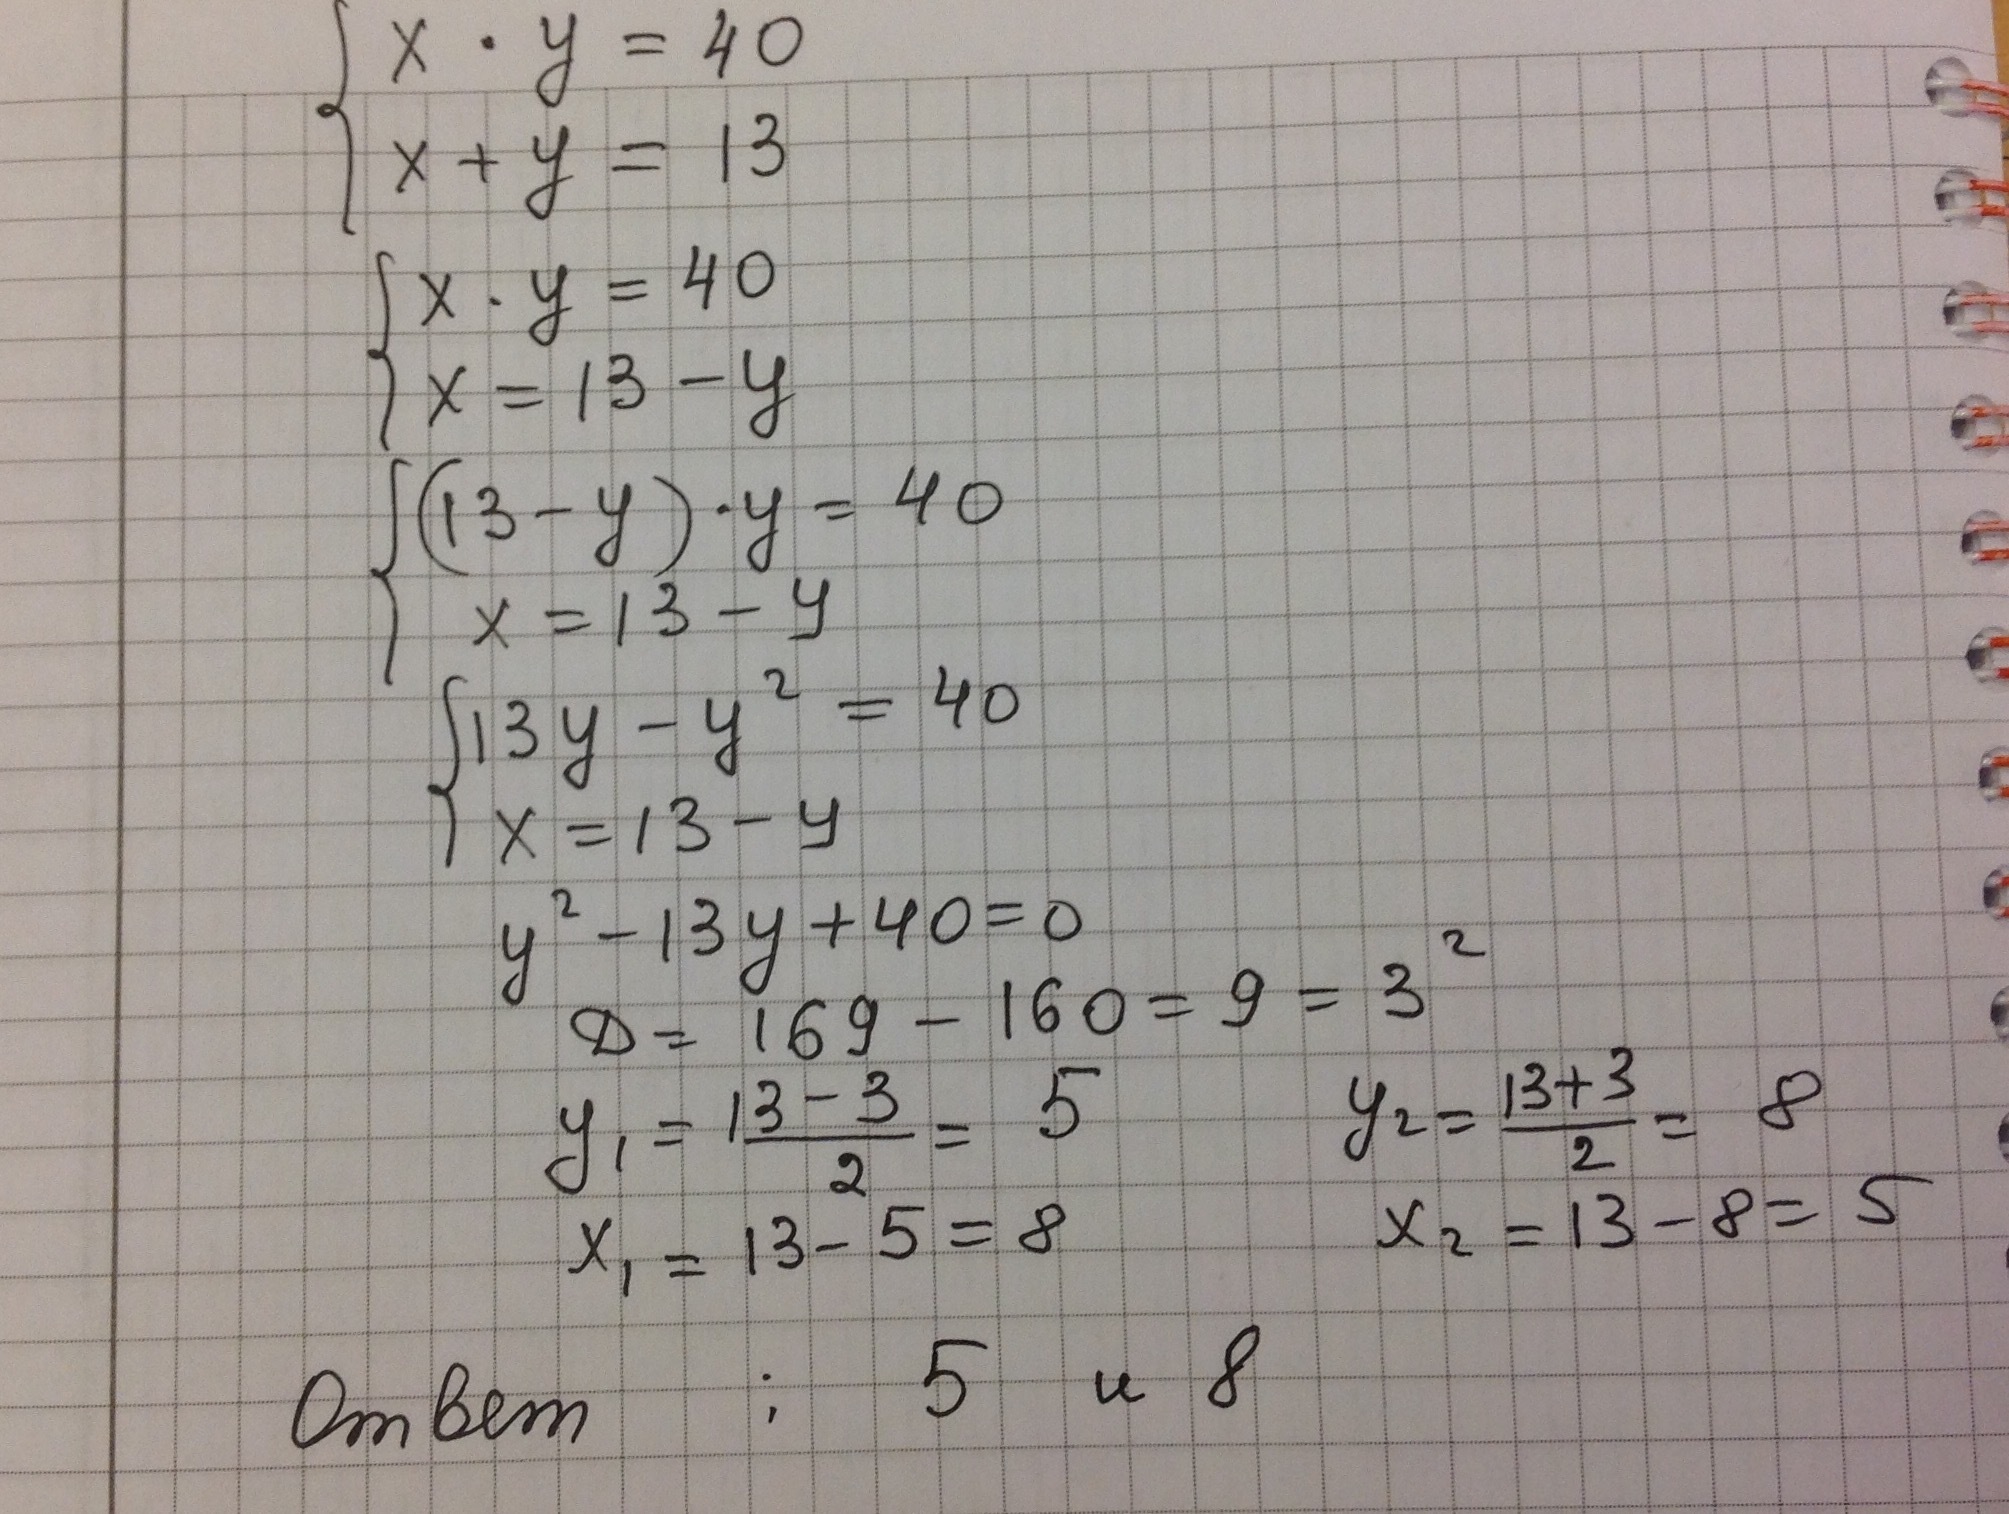 x · y = 40
x + y = 13
x · y = 40
x = 13 - y
(13 - y) · y = 40
x = 13 - y
13y - y² = 40
x = 13 - y
y² - 13y + 40 = 0
D = 169 - 160 = 9 = 3²
y₁ = (13 - 3)/2 = 5    y₂ = (13 + 3)/2 = 8
x₁ = 13 - 5 = 8    x₂ = 13 - 8 = 5
Ответ : 5 и 8